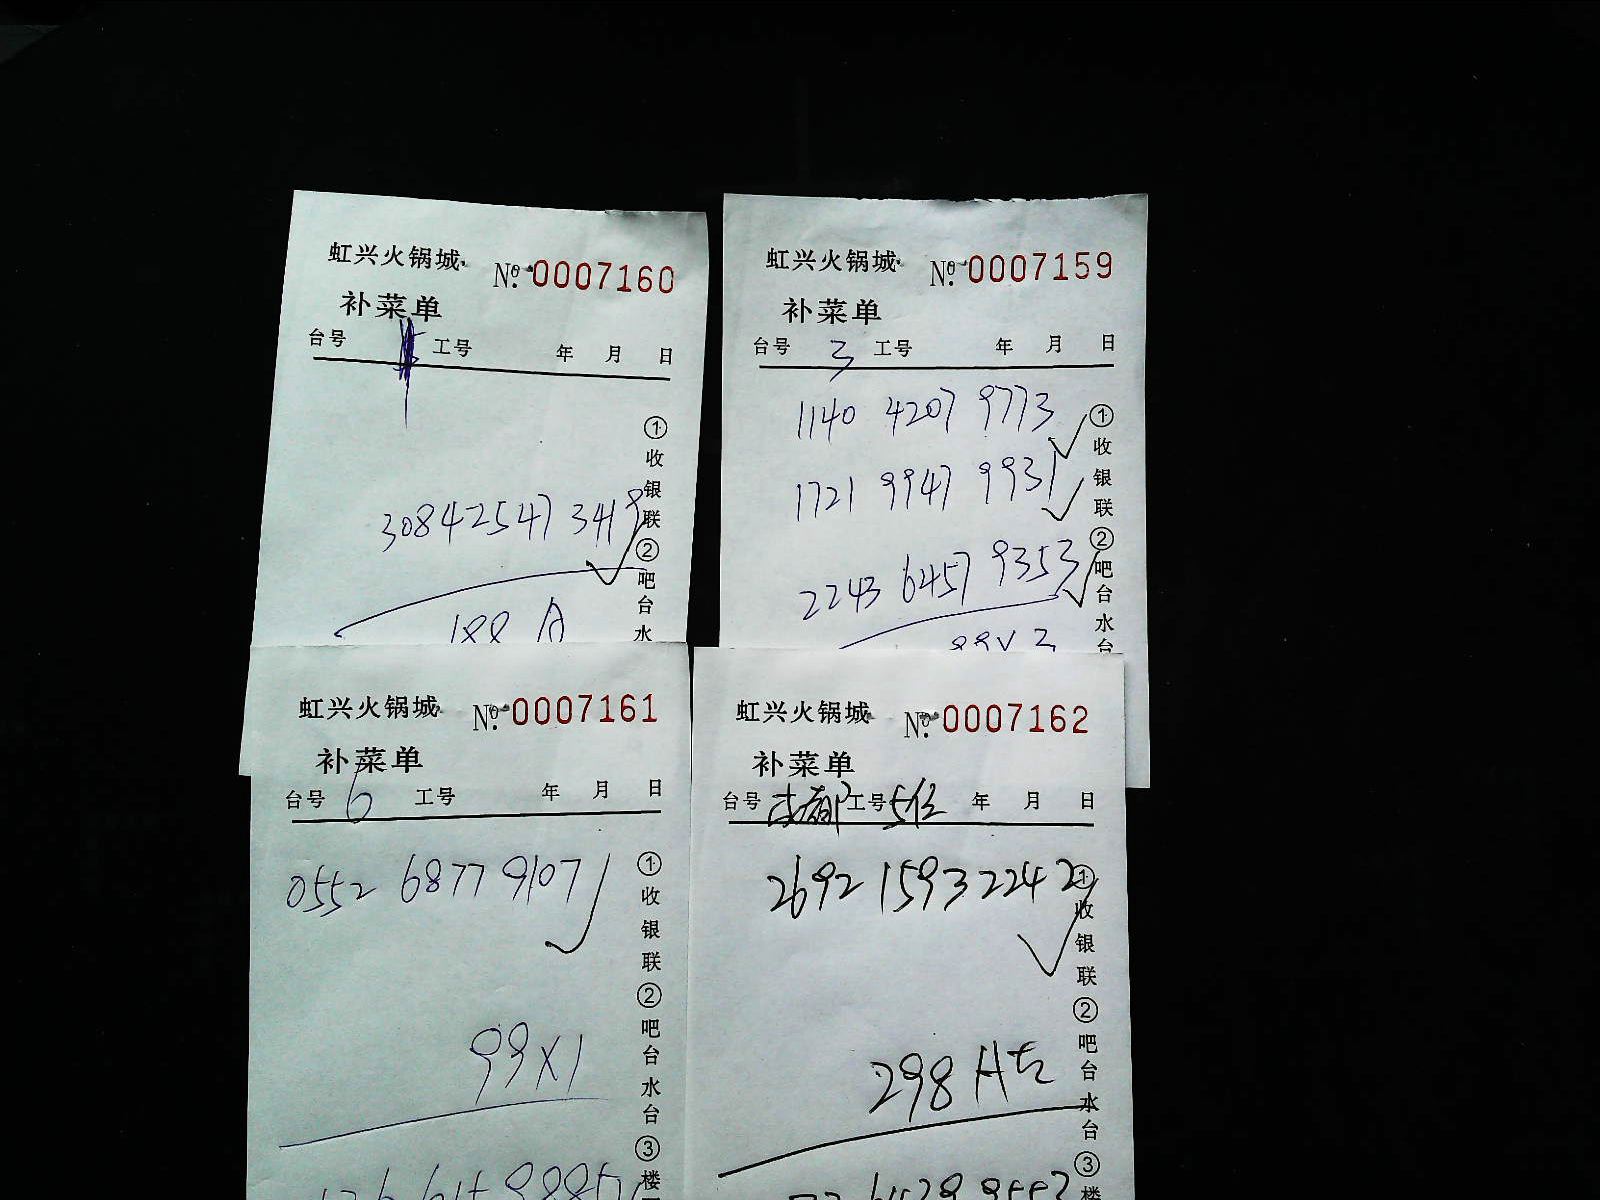 虹兴火锅城 No. 0007160
补菜单
台号 工号 年 月 日
3084 2547 3419
188 A
①收银联②吧台水
虹兴火锅城 No. 0007159
补菜单
台号 3 工号 年 月 日
1140 4207 9773
1721 9947 9931
2243 6457 9353
①收银联②吧台水台
虹兴火锅城 No. 0007161
补菜单
台号 6 工号 年 月 日
0552 6877 9107
99X1
①收银联②吧台水台③楼
虹兴火锅城 No. 0007162
补菜单
台号 成都 工号 5位 年 月 日
2692 1593 2242
298 A
①收银联②吧台水台③楼